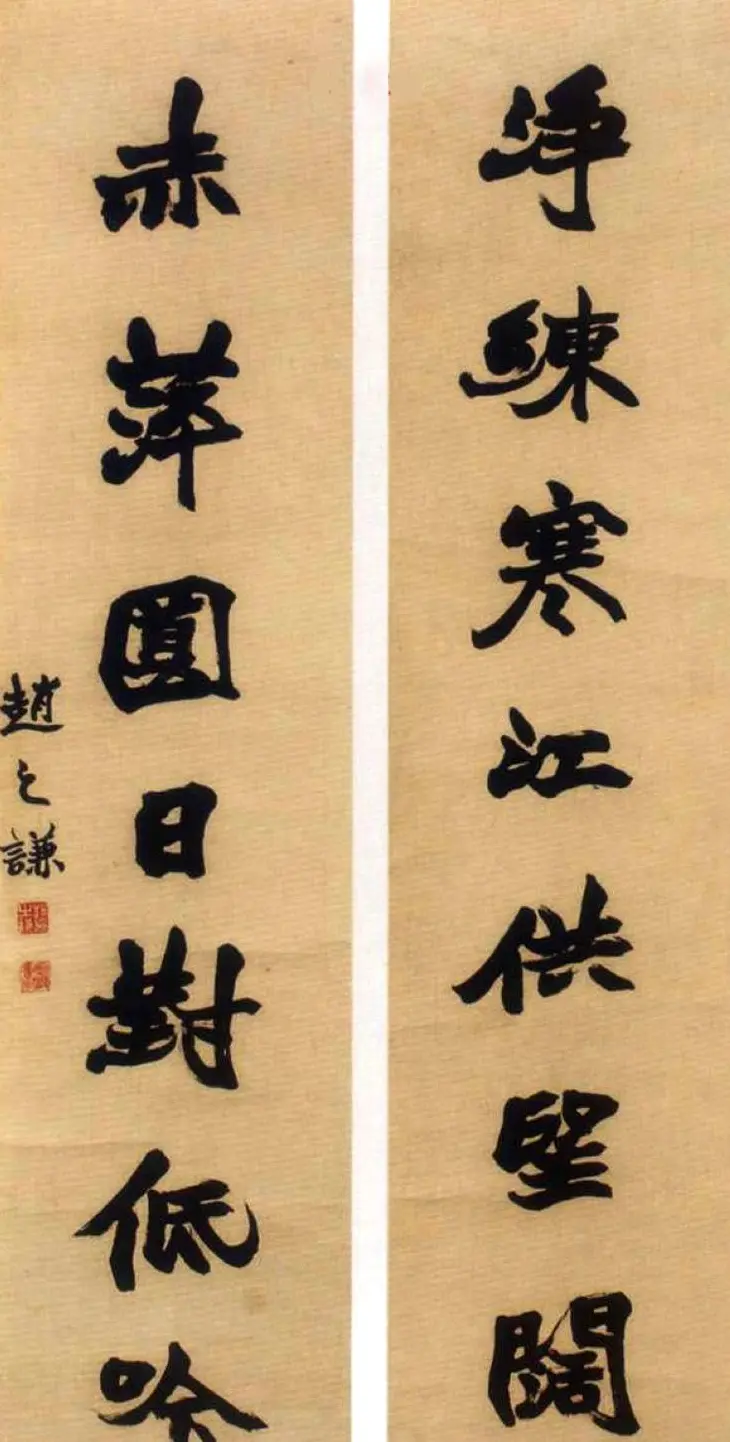 淨練寒江供朢闊
赤萍圓日對低吟
趙之謙